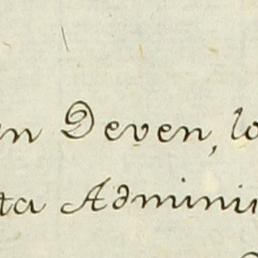 n Deven, lo
ta Admini